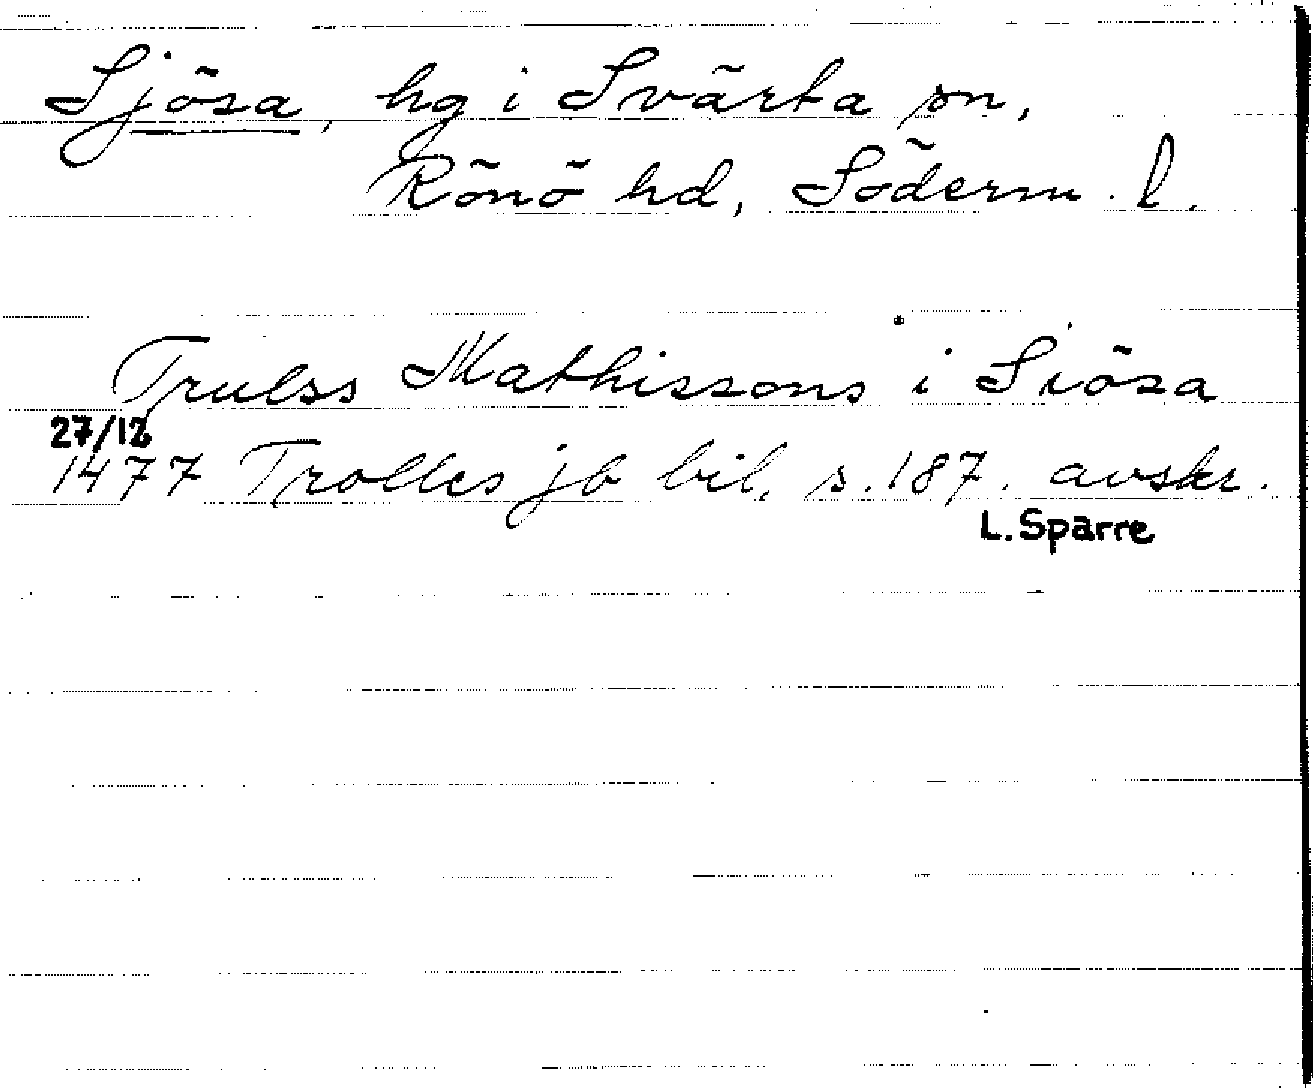 Sjösa, hg i Svärta sn,
Rönö hd, Söderm. l.
Trulss Mathissons i Siösa
27/12
1477 Trolles jb bil. s. 187. avskr.
L. Sparre